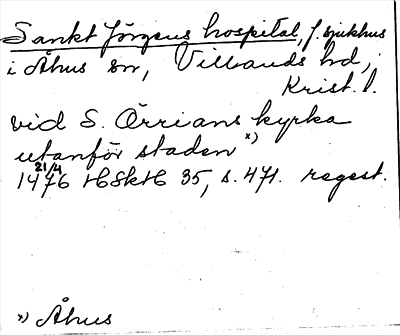 Sankt Jörgens hospital, f. sjukhus
i Åhus sn, Villands hd,
Krist. l.
vid S. Örrians kyrka
utanför staden x)
21/4
1476 HSkH 35, s. 471. regest.
x) Åhus